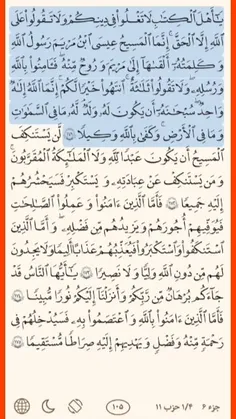 يَـٰٓأَهۡلَ ٱلۡكِتَـٰبِ لَا تَغۡلُوا۟ فِی دِینِكُمۡ وَلَا تَقُولُوا۟ عَلَى
ٱللَّهِ إِلَّا ٱلۡحَقَّۚ إِنَّمَا ٱلۡمَسِیحُ عِیسَى ٱبۡنُ مَرۡیَمَ رَسُولُ ٱللَّهِ
وَكَلِمَتُهُۥٓ أَلۡقَىٰهَآ إِلَىٰ مَرۡیَمَ وَرُوحࣱ مِّنۡهُۖ فَـَٔامِنُوا۟ بِٱللَّهِ
وَرُسُلِهِۦۖ وَلَا تَقُولُوا۟ ثَلَـٰثَةٌۚ ٱنتَهُوا۟ خَیۡرࣰا لَّكُمۡۚ إِنَّمَا ٱللَّهُ إِلَـٰهࣱ
وَ ٰحِدࣱۖ سُبۡحَـٰنَهُۥٓ أَن یَكُونَ لَهُۥ وَلَدࣱۘ لَّهُۥ مَا فِی ٱلسَّمَـٰوَ ٰتِ
وَمَا فِی ٱلۡأَرۡضِۗ وَكَفَىٰ بِٱللَّهِ وَكِیلࣰا ١٧١ لَّن یَسۡتَنكِفَ
ٱلۡمَسِیحُ أَن یَكُونَ عَبۡدࣰا لِّلَّهِ وَلَا ٱلۡمَلَـٰۤىِٕكَةُ ٱلۡمُقَرَّبُونَۚ
وَمَن یَسۡتَنكِفۡ عَنۡ عِبَادَتِهِۦ وَیَسۡتَكۡبِرۡ فَسَیَحۡشُرُهُمۡ
إِلَیۡهِ جَمِیعࣰا ١٧٢ فَأَمَّا ٱلَّذِینَ ءَامَنُوا۟ وَعَمِلُوا۟ ٱلصَّـٰلِحَـٰتِ
فَیُوَفِّیهِمۡ أُجُورَهُمۡ وَیَزِیدُهُم مِّن فَضۡلِهِۦۖ وَأَمَّا ٱلَّذِینَ
ٱسۡتَنكَفُوا۟ وَٱسۡتَكۡبَرُوا۟ فَیُعَذِّبُهُمۡ عَذَابًا أَلِیمࣰا وَلَا یَجِدُونَ
لَهُم مِّن دُونِ ٱللَّهِ وَلِیࣰّا وَلَا نَصِیرࣰا ١٧٣ یَـٰٓأَیُّهَا ٱلنَّاسُ قَدۡ
جَآءَكُم بُرۡهَـٰنࣱ مِّن رَّبِّكُمۡ وَأَنزَلۡنَآ إِلَیۡكُمۡ نُورࣰا مُّبِینࣰا ١٧٤
فَأَمَّا ٱلَّذِینَ ءَامَنُوا۟ بِٱللَّهِ وَٱعۡتَصَمُوا۟ بِهِۦ فَسَیُدۡخِلُهُمۡ فِی
رَحۡمَةࣲ مِّنۡهُ وَفَضۡلࣲ وَیَهۡدِیهِمۡ إِلَیۡهِ صِرَ ٰطࣰا مُّسۡتَقِیمࣰا ١٧٥
جزء ٦ ١/٤ حزب ١١ ١٠٥